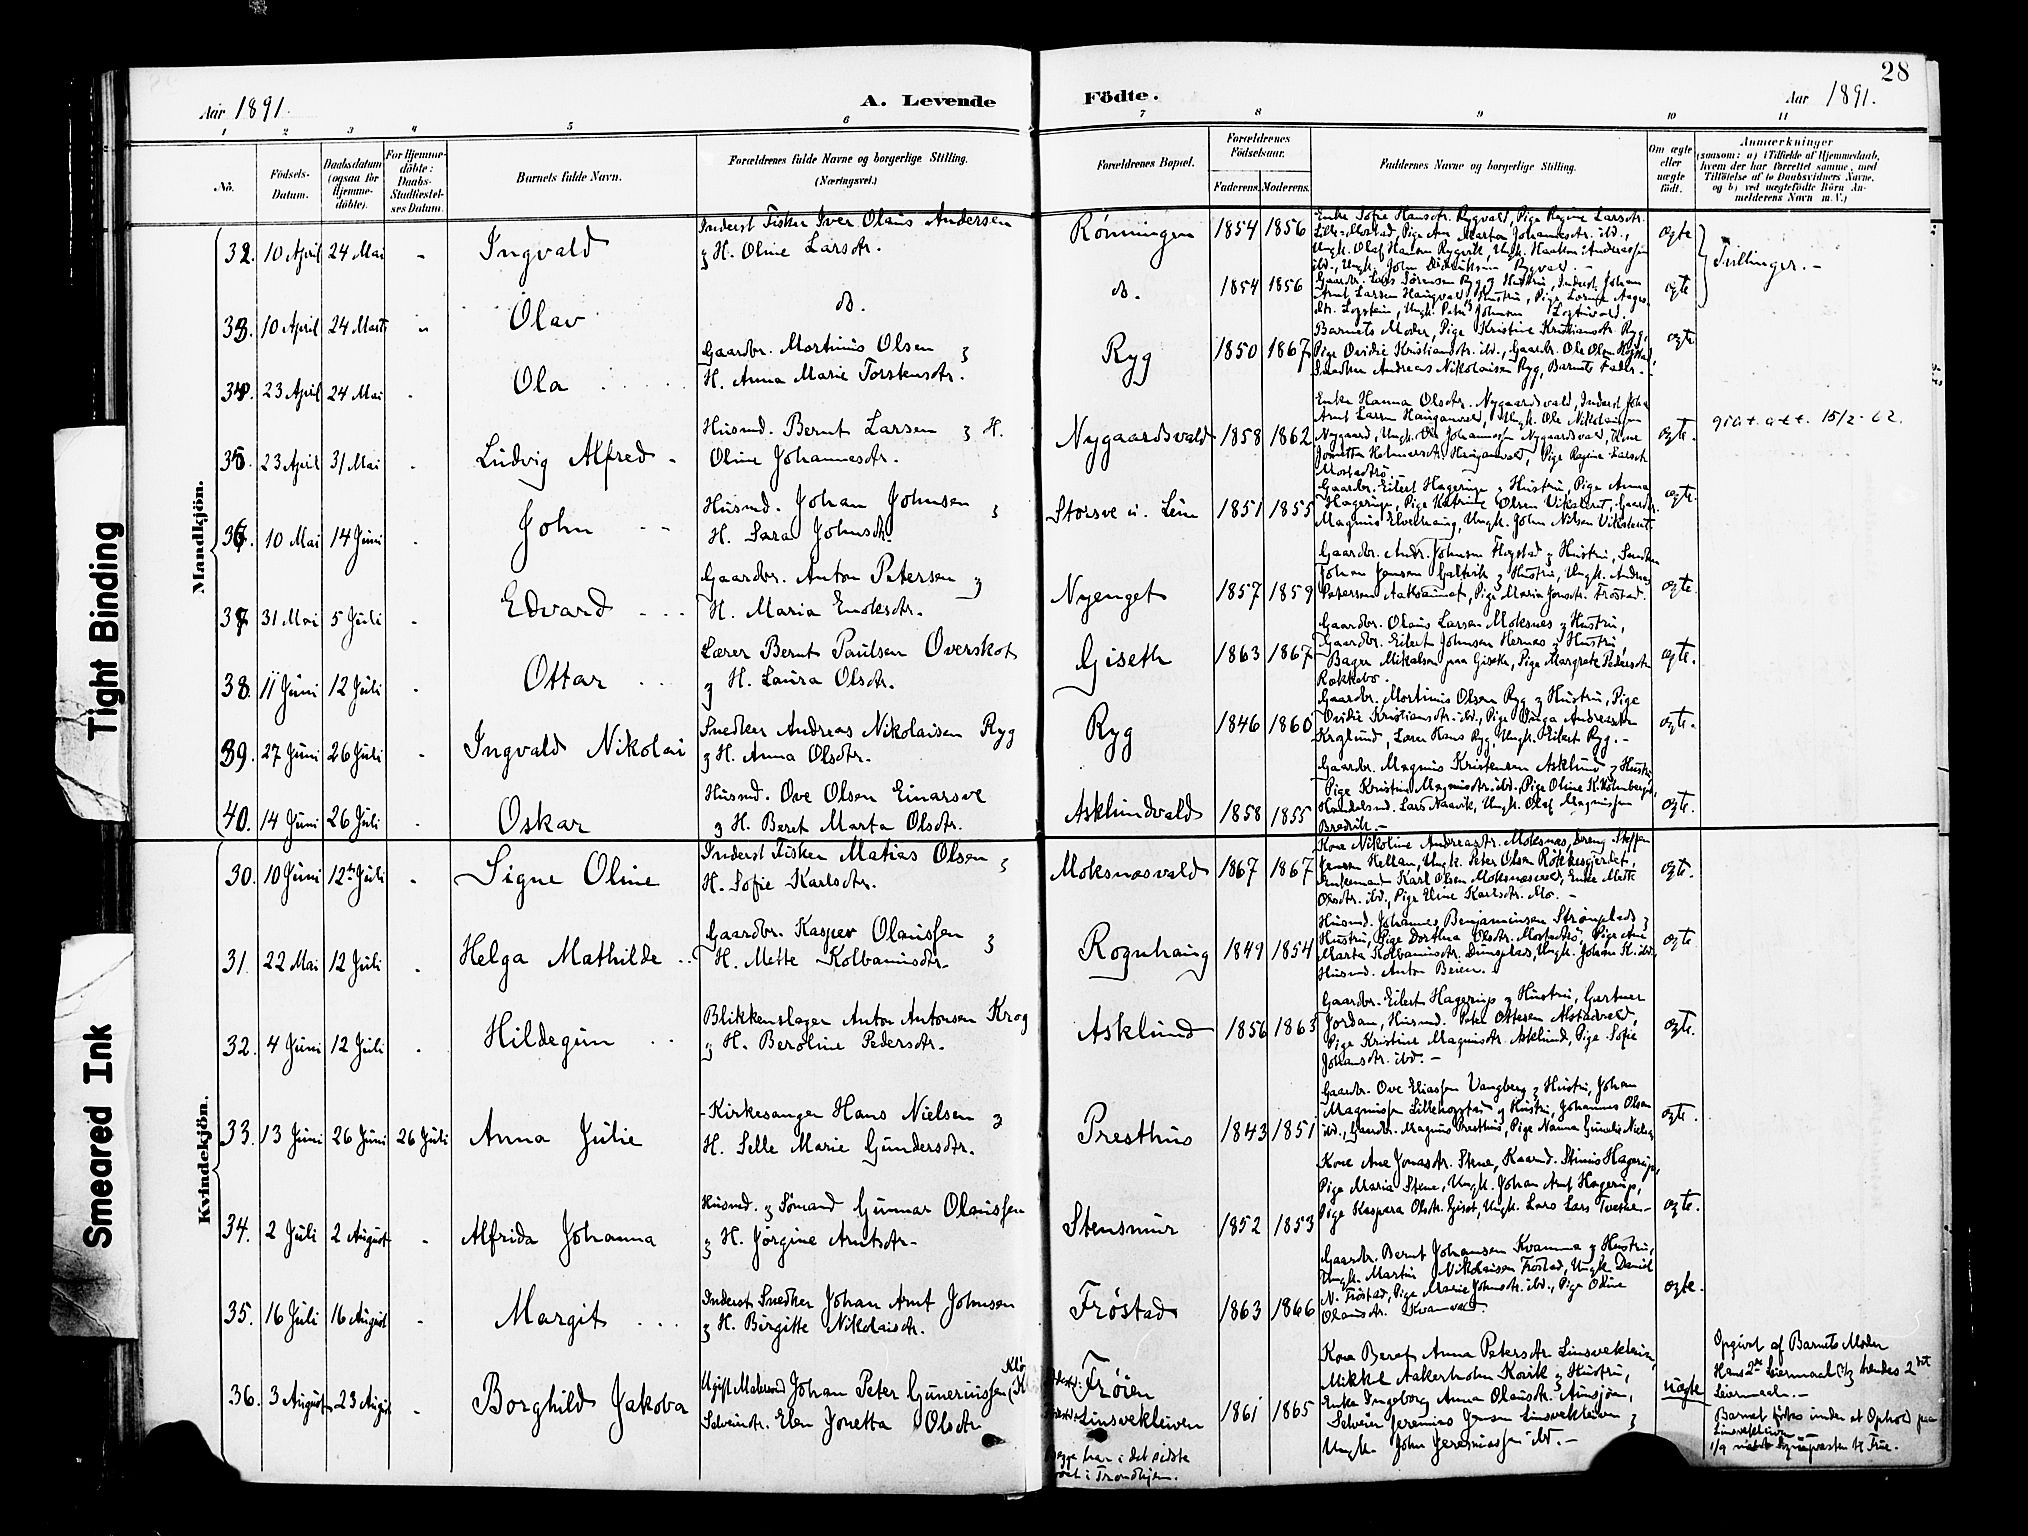 28
Aar 1891.
A. Levende Födte.
Aar 1891.
1 2 3 4 5 6 7 8 9 10 11
No.
Födsels-
Datum.
Daabsdatum
(ogsaa for
Hjemme-
döbte).
For Hjemme-
döbte:
Daabs-
Stadfæstel-
ses Datum.
Barnets fulde Navn.
Forældrenes fulde Navne og borgerlige Stilling.
(Næringsvei.)
Forældrenes Bopæl.
Forældrenes
Födselsaar.
Faderens. Moderens.
Faddernes Navne og borgerlige Stilling.
Om ægte
eller
uægte
födt.
Anmærkninger
(saasom: a) i Tilfælde af Hjemmedaab,
hvem der har forrettet samme, med
Tilföielse af to Daabsvidners Navne,
og b) ved uægtefödte Börn An-
melderens Navn m. V.)
Mandkjön.
32. 10 April 24 Mai - Ingvald
Inderst Fisker Iver Olaus Andersen
og H. Oline Larsdtr.
Rönningen 1854 1856
Enke Sofie Hansdtr. Rygvald, Pige Regine Larsdtr.
ægte
Tvillinger. -
33. 10 April 24 Mai Olav
do.
do. 1854 1856
Gaardbr. Lars Sörensen Ryg og Hustru, Inderst Johan
ægte
34. 23 April 24 Mai Ola
Gaardbr. Mortinus Olsen og
H. Anna Marie Torstensdtr.
Ryg 1850 1867
Barnets Moder, Pige Kristine Kristiansdtr. Ryg,
Pige Ovidie Kristiansdtr. ibd., Gaardbr. Ole Olsen
Snedker Andreas Nikolaisen Ryg, Barnets Fader. -
ægte
35. 23 April 31 Mai Ludvig Alfred -
Husmd. Bernt Larsen og H.
Oline Johannesdtr.
Nygaardsvald 1858 1862
Enke Hanna Olsdtr. Nygaardsvald, Inderst John
Arnt Larsen Haugavald, Ungk. Ole Nikolaisen
Nygaard, Ungk. Ole Johannesen Nygaardsvald, Kone
ægte.
giatatt. 15/2-62.
36. 10 Mai 14 Juni John
Husmd. Johan Johnsen og
H. Sara Johnsdtr.
Storsve u. Lein 1851 1855
Gaardbr. Eilert Hagerup og Hustru, Pige Anna
Hagerup, Pige Katrine Olsen Viksletet, Gaardbr.
Magnus Elverhaug, Ungk. John Nilsen Viksletet
ægte.
37. 31 Mai 5 Juli Edvard
Gaardbr. Anton Petersen og
H. Maria Enoksdtr.
Nyenget 1857 1859
Gaardbr. Andr. Johnsen Flegstad og Hustru, Snedker
Johan Jensen Galtvik og Hustru, Ungk. Andreas
Petersen Aaksaunet, Pige Maria Jonsdtr. Fröstad.
ægte.
38. 11 Juni 12 Juli Ottar
Lærer Bernt Paulsen Överskot
og H. Laura Olsdtr.
Giseth 1863 1867
Gaardbr. Olaus Larsen Moksnes og Hustru,
Gaardbr. Eilert Johnsen Hernes og Hustru,
Bager Mikalsen paa Giseth, Pige Margrete Pedersdtr.
Rokkebo.
ægte.
39. 27 Juni 26 Juli Ingvald Nikolai
Snedker Andreas Nikolaisen Ryg
og H. Anna Olsdtr.
Ryg 1846 1860
Gaardbr. Mortinus Olsen Ryg og Hustru, Pige
Ovidie Kristiansdtr. ibd., Pige Inga Andreasdtr.
Kroglund, Lærer Hans Ryg, Ungk. Eilert Ryg. -
ægte.
40. 14 Juni 26 Juli Oskar
Husmd. Ove Olsen Einarsve
og H. Beret Marta Olsdtr.
Asklundvald 1858 1855
Gaardbr. Magnus Kristensen Asklund og Hustru,
Pige Kristine Magnusdtr. ibd., Pige Oline K. Holmberget,
Handelsmd. Lars Naavik, Ungk. Olaf Magnussen
Bredvik. -
ægte.
Kvindekjön.
30. 10 Juni 12te Juli Signe Oline
Inderst Fisker Matias Olsen og
H. Sofie Karlsdtr.
Moksnæsvald 1867 1867
Kone Nikoline Andreasdtr. Moksnæs, Dreng Steffen
Jensen Hellan, Ungk. Peter Olsen Rökkesgjerdet,
Enkemand Karl Olsen Moksnæsvald, Enke Mette
Olsdtr. ibd., Pige Eline Karlsdtr. Mo. -
ægte.
31. 22 Mai 12 Juli Helga Mathilde
Gaardbr. Kasper Olaussen og
H. Mette Kolbanusdtr.
Rognhaug 1849 1854
Husmd. Johannes Benjaminsen Strönplads og
Hustru, Pige Dorthea Olsdtr. Mostadtrö, Pige Ane
Marta Kolbanusdtr. Dunsplads, Ungk. Johan K. ibd.,
Husmd. Anton Beien.
ægte
32. 4 Juni 12 Juli Hildegun
Blikkenslager Anton Antonsen Krog
og H. Beroline Pedersdtr.
Asklund 1856 1863
Gaardbr. Eilert Hagerup og Hustru, Gartner
Jordan, Husmd. Peter Ottesen Alstadvald,
Pige Kristine Magnusdtr. Asklund, Pige Sofie
Johansdtr. ibd. -
ægte.
33. 13 Juni 26 Juni 26 Juli Anna Julie
Kirkesanger Hans Nielsen og
H. Selle Marie Gundersdtr.
Presthus 1843 1851
Gaardbr. Ove Eliassen Vangberg og Hustru, Johan
Magnussen Lillehopstad og Hustru, Johannes Olsen
ibd., Gaardbr. Magnus Presthus, Pige Nanna Gunelie Nielsen
ægte.
34. 2 Juli 2 August - Alfrida Johanna
Husmd. og Sömand Gunnar Olaussen
og H. Jörgine Arntsdtr.
Stensmur 1852 1853
Kone Ane Jonasdtr. Stene, Kaarmd. Stinus Hagerup,
Pige Maria Stene, Ungk. Johan Arnt Hagerup,
Pige Kaspara Olsdtr. Giset, Ungk. Lars Lars Tveeken -
ægte.
35. 16 Juli 16 August - Margit
Inderst Snedker Johan Arnt Johnsen
og H. Birgitte Nikolaisdtr.
Fröstad 1863 1866
Gaardbr. Bernt Johansen Kvamme og Hustru,
Ungk. Martin Nikolaisen Fröstad, Ungk. Daniel
N. Fröstad, Pige Marie Johnsdtr. ibd., Pige Oline
Olausdtr. Kvamvald
ægte.
36. 3 August 23 August - Borghild Jakoba
Ugift Matrosmd Johan Peter Gunerinssen
Selveindtr. Elen Jonetta Olsdtr.
Fröien
Linsvekleiven
1861 1865
Begge har i det sidste
været i Trondhjem.
Kone Beret Anna Petersdtr. Linsvekleiven,
Mikkel Aakerholm Korvik og Hustru,
Enke Ingeborg Anna Olausdtr. Aunsjöen,
Selveier Jeremias Jensen Linsvekleiven og
Ungk. John Jeremiassen ibd. -
uægte
Opgivet af Barnets Moder
Hans 2de Leiermaal og hendes 2det
Leiermaal. -
Barnet födes under et Ophold paa
Linsvekleiven
Tight Binding
Smeared Ink